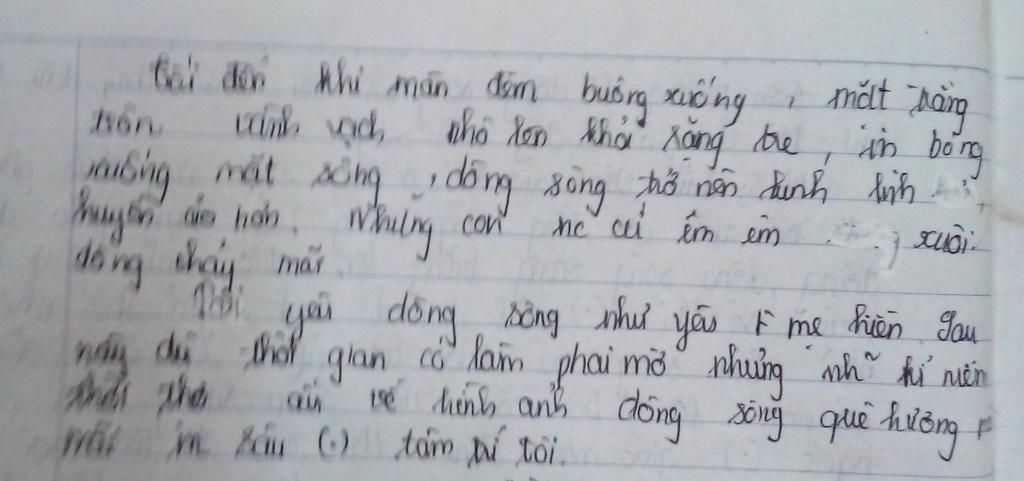 Cho đến khi màn đêm buông xuống, mặt trăng
tròn vành vạch nhô lên khỏi rặng tre, in bóng
xuống mặt sông, dòng sông trở nên lung linh,
huyền ảo hơn. Những con nc cứ êm êm xuôi
dòng chảy mãi.
Tôi yêu dòng sông như yêu mẹ hiền. Sau
này dù thời gian có làm phai mờ nhưng nh~ kỉ niệm
thời thơ ấu về hình ảnh dòng sông quê hương
mãi in sâu (.) tâm trí tôi.